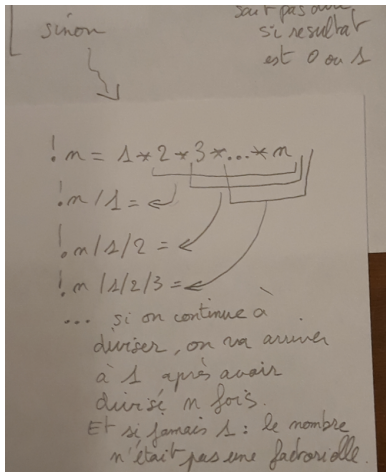 sinon
si resultat
est 0 ou 1
!n = 1*2*3*...*n
!n/1 =
!n/1/2 =
!n/1/2/3 =
... si on continue à
diviser, on va arriver
à 1 après avoir
divisé n fois.
Et si jamais 1 : le nombre
n'était pas une factorielle.